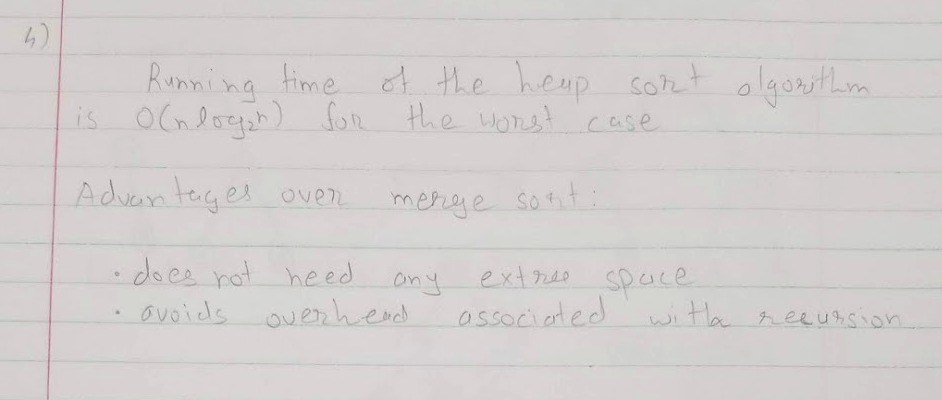 4)
Running time of the heap sort algorithm
is O(nlog₂n) for the worst case
Advantages over merge sort:
• does not need any extra space
• avoids overhead associated with recursion